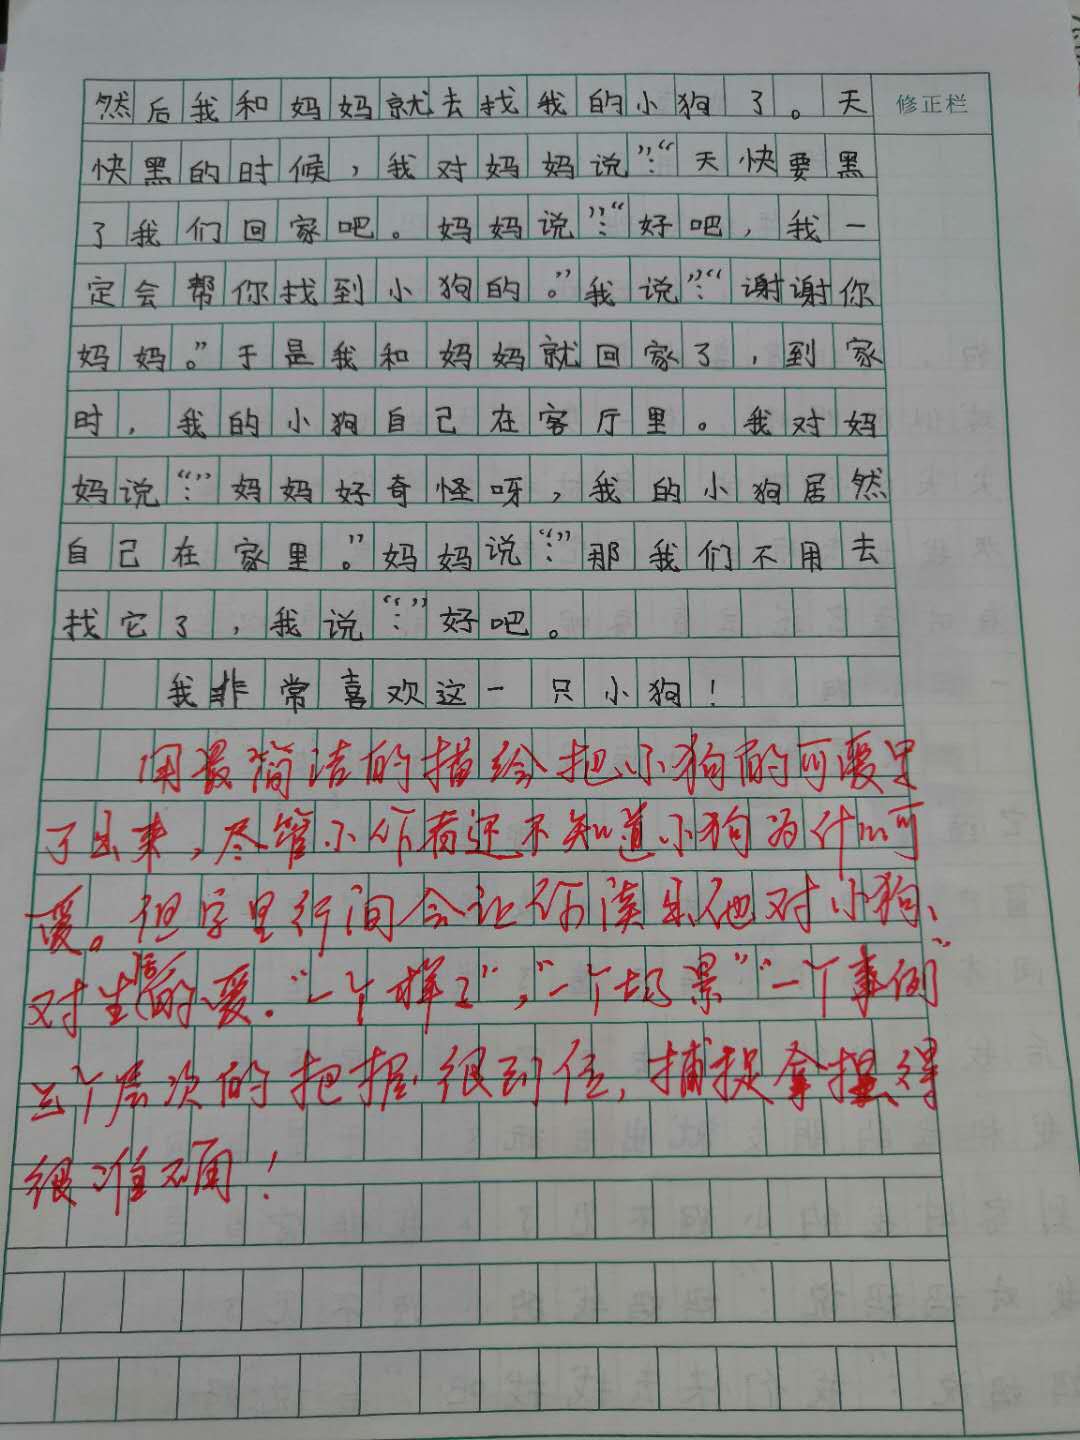 然后我和妈妈就去找我的小狗了。天
修正栏
快黑的时候，我对妈妈说”：“天快要黑
了我们回家吧。妈妈说”：“好吧，我一
定会帮你找到小狗的。”我说”：“谢谢你
妈妈。”于是我和妈妈就回家了，到家
时，我的小狗自己在客厅里。我对妈
妈说“：”妈妈好奇怪呀，我的小狗居然
自己在家里。”妈妈说“：”那我们不用去
找它了，我说“：”好吧。
我非常喜欢这一只小狗！
用最简洁的描绘把小狗的可爱呈
了出来，尽管小作者还不知道小狗为什么可
爱。但字里行间会让你读出他对小狗、
对生活的爱。“一个样子”，“一个场景”“一个事例”
三个层次的把握很到位，捕捉拿捏得
很准确！